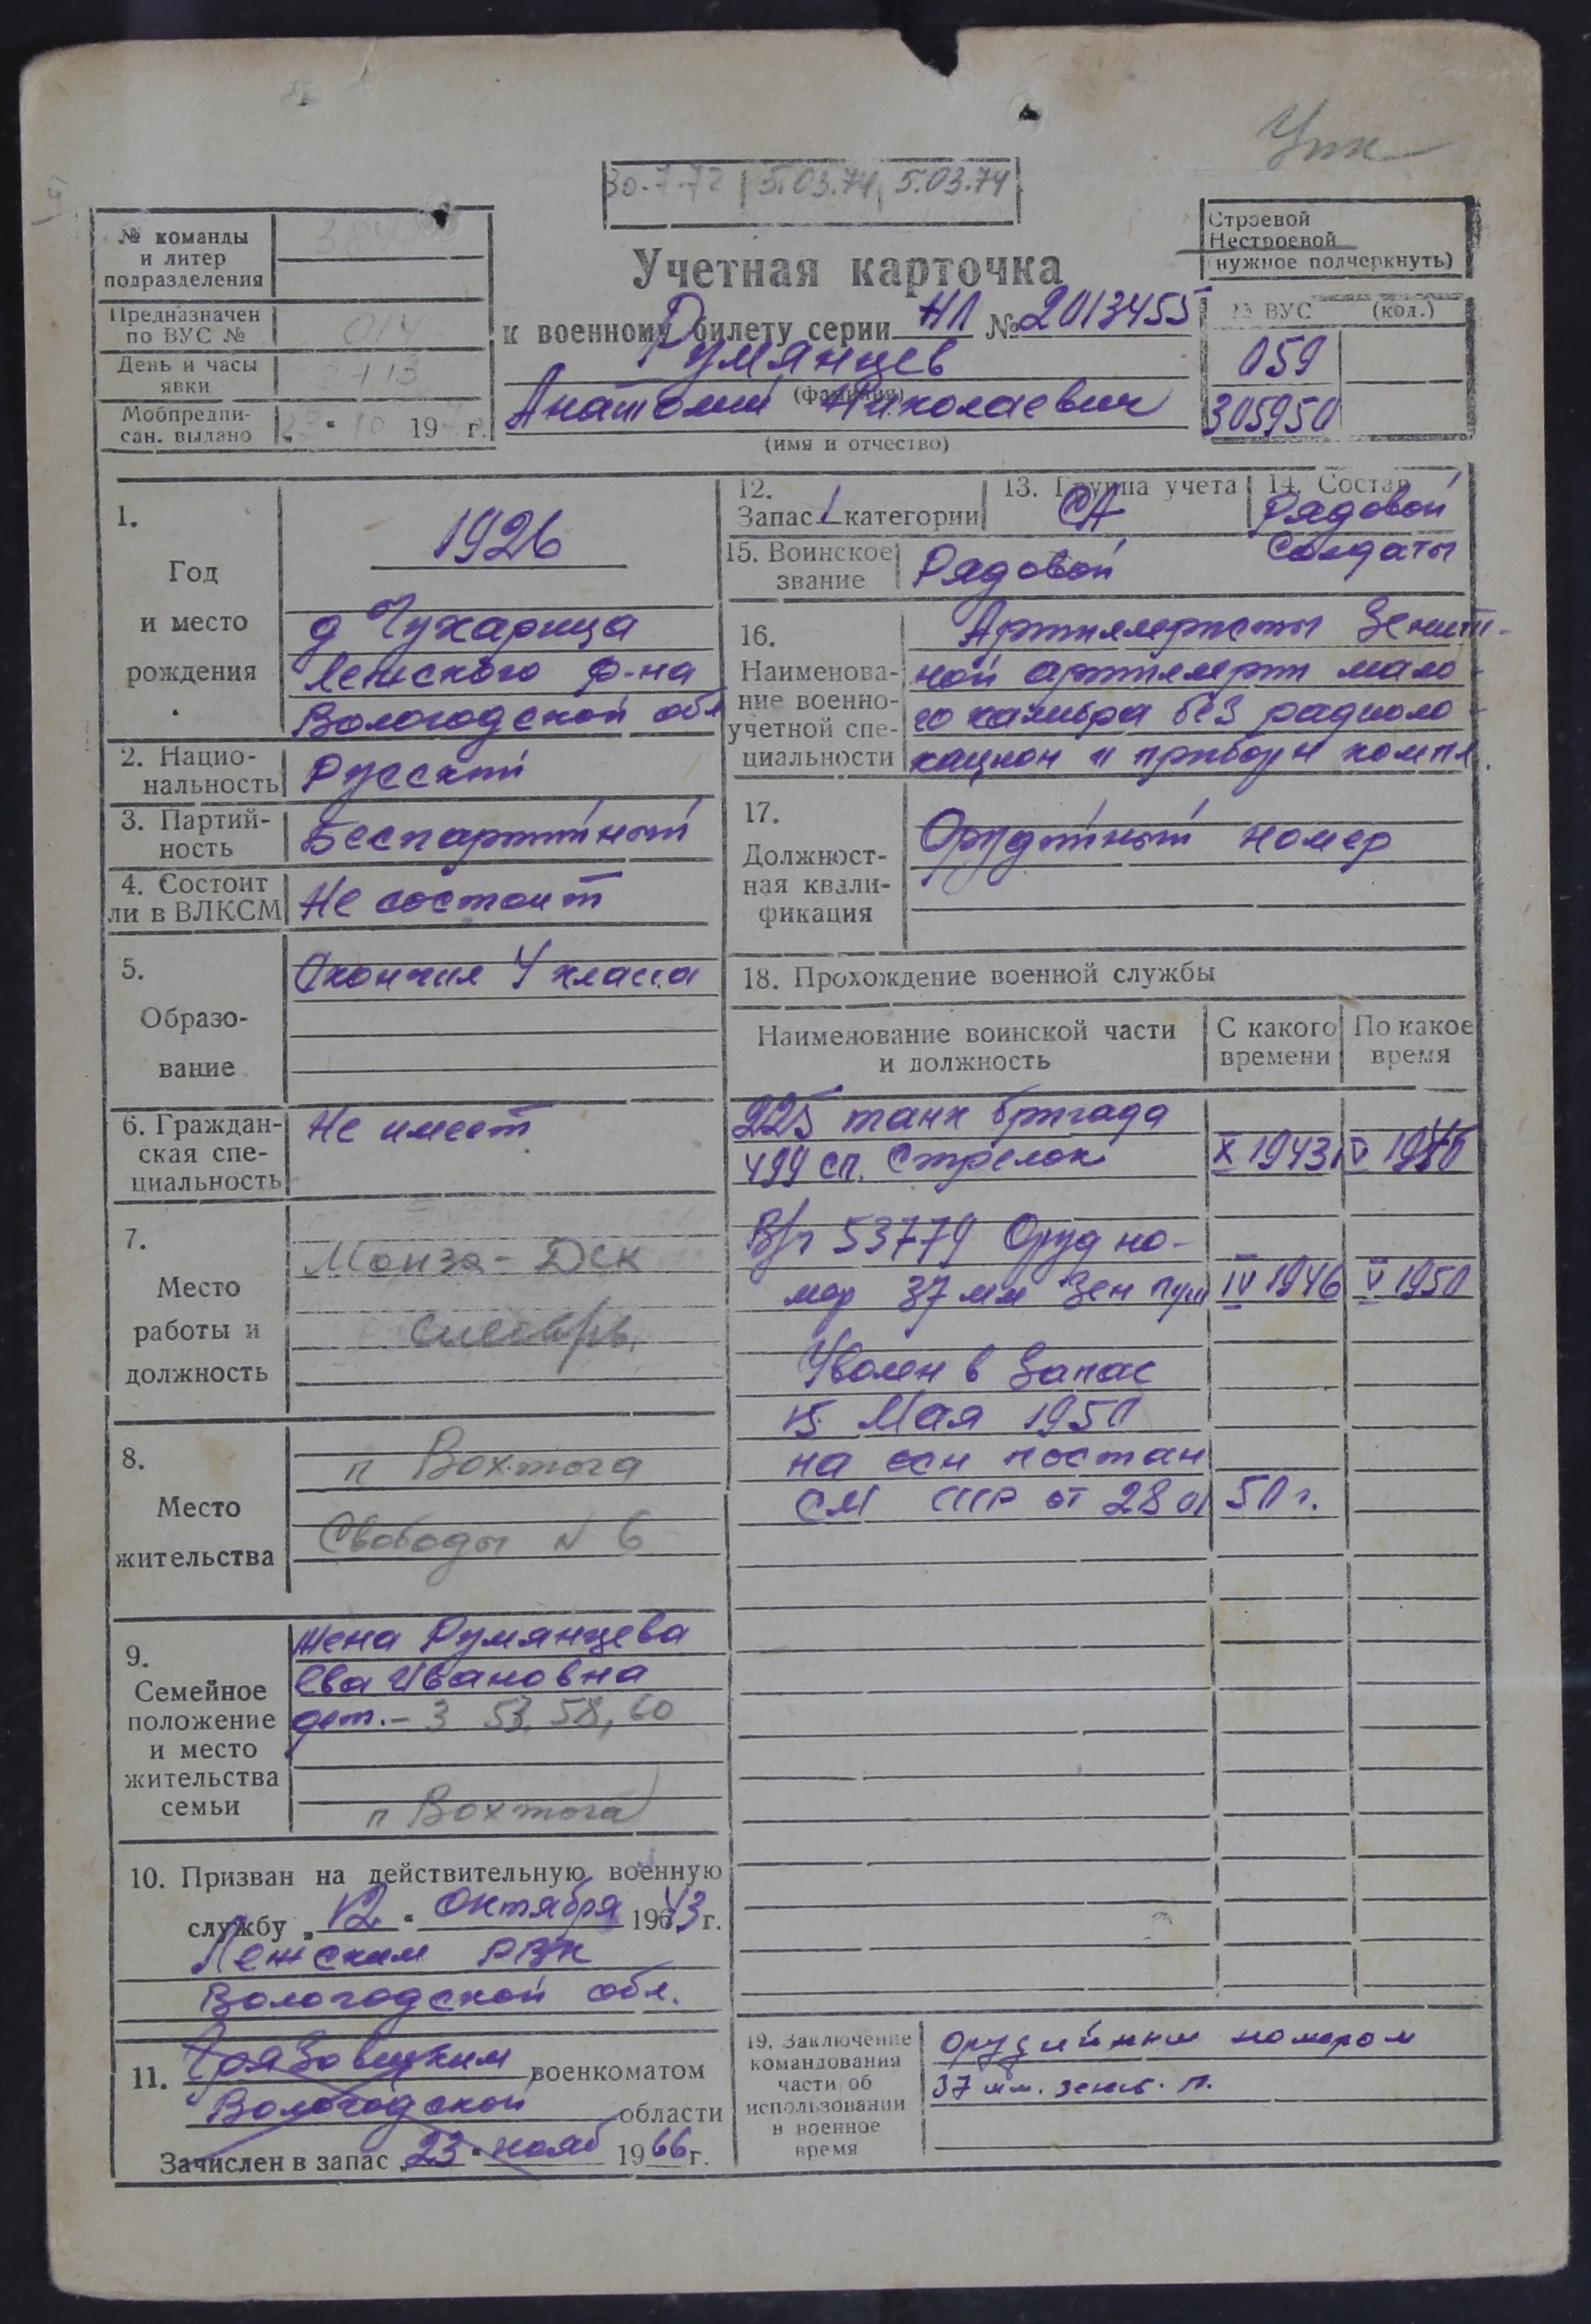 Упк
30.7.72 5.03.74 5.03.74
№ команды
и литер
подразделения
Предназначен
по ВУС № 014
День и часы
явки
Мобпредпи-
сан. выдано „ “ 10 19 г.
Учетная карточка
к военному билету серии НЛ № 2013455
Румянцев
(фамилия)
Анатолий Николаевич
(имя и отчество)
Строевой
Нестроевой
(нужное подчеркнуть)
№ ВУС (код.)
059
305950
1.
Год
и место
рождения
1926
д Чухарица
Лежского р-на
Вологодской обл
2. Нацио-
нальность
Русский
3. Партий-
ность
Беспартийный
4. Состоит
ли в ВЛКСМ
Не состоит
5.
Образо-
вание
Окончил 4 класса
6. Граждан-
ская спе-
циальность
Не имеет
7.
Место
работы и
должность
Монза - ДСК
8.
Место
жительства
п Вохтога
Свободы № 6
9.
Семейное
положение
и место
жительства
семьи
жена Румянцева
Ева Ивановна
дет. - 3 53, 58, 60
п Вохтога
10. Призван на действительную военную
службу „12“ Октября 1943 г.
Лежским РВК
Вологодской обл.
11. Грязовецким военкоматом
Вологодской области
Зачислен в запас „23“ нояб 1966 г.
12.
Запас 1 категории
13. Группа учета
СА
14. Состав
Рядовой
Солдаты
15. Воинское
звание
Рядовой
16.
Наименова-
ние военно-
учетной спе-
циальности
Артиллеристы Зенит-
ной артиллерии мало-
го калибра без радиоло-
кацион и приборн компл.
17.
Должност-
ная квали-
фикация
Орудийный номер
18. Прохождение военной службы
Наименование воинской части
и должность
С какого
времени
По какое
время
225 танк бригада
499 сп. Стрелок X 1943
В/ч 53779 Оруд но-
мер 37 мм Зен пуш IV 1946 V 1950
Уволен в Запас
15 Мая 1950
на осн постан
СМ СССР от 28 01 50 г.
19. Заключение
командования
части об
использовании
в военное
время
орудийным номером
37 мм. зенит. п.